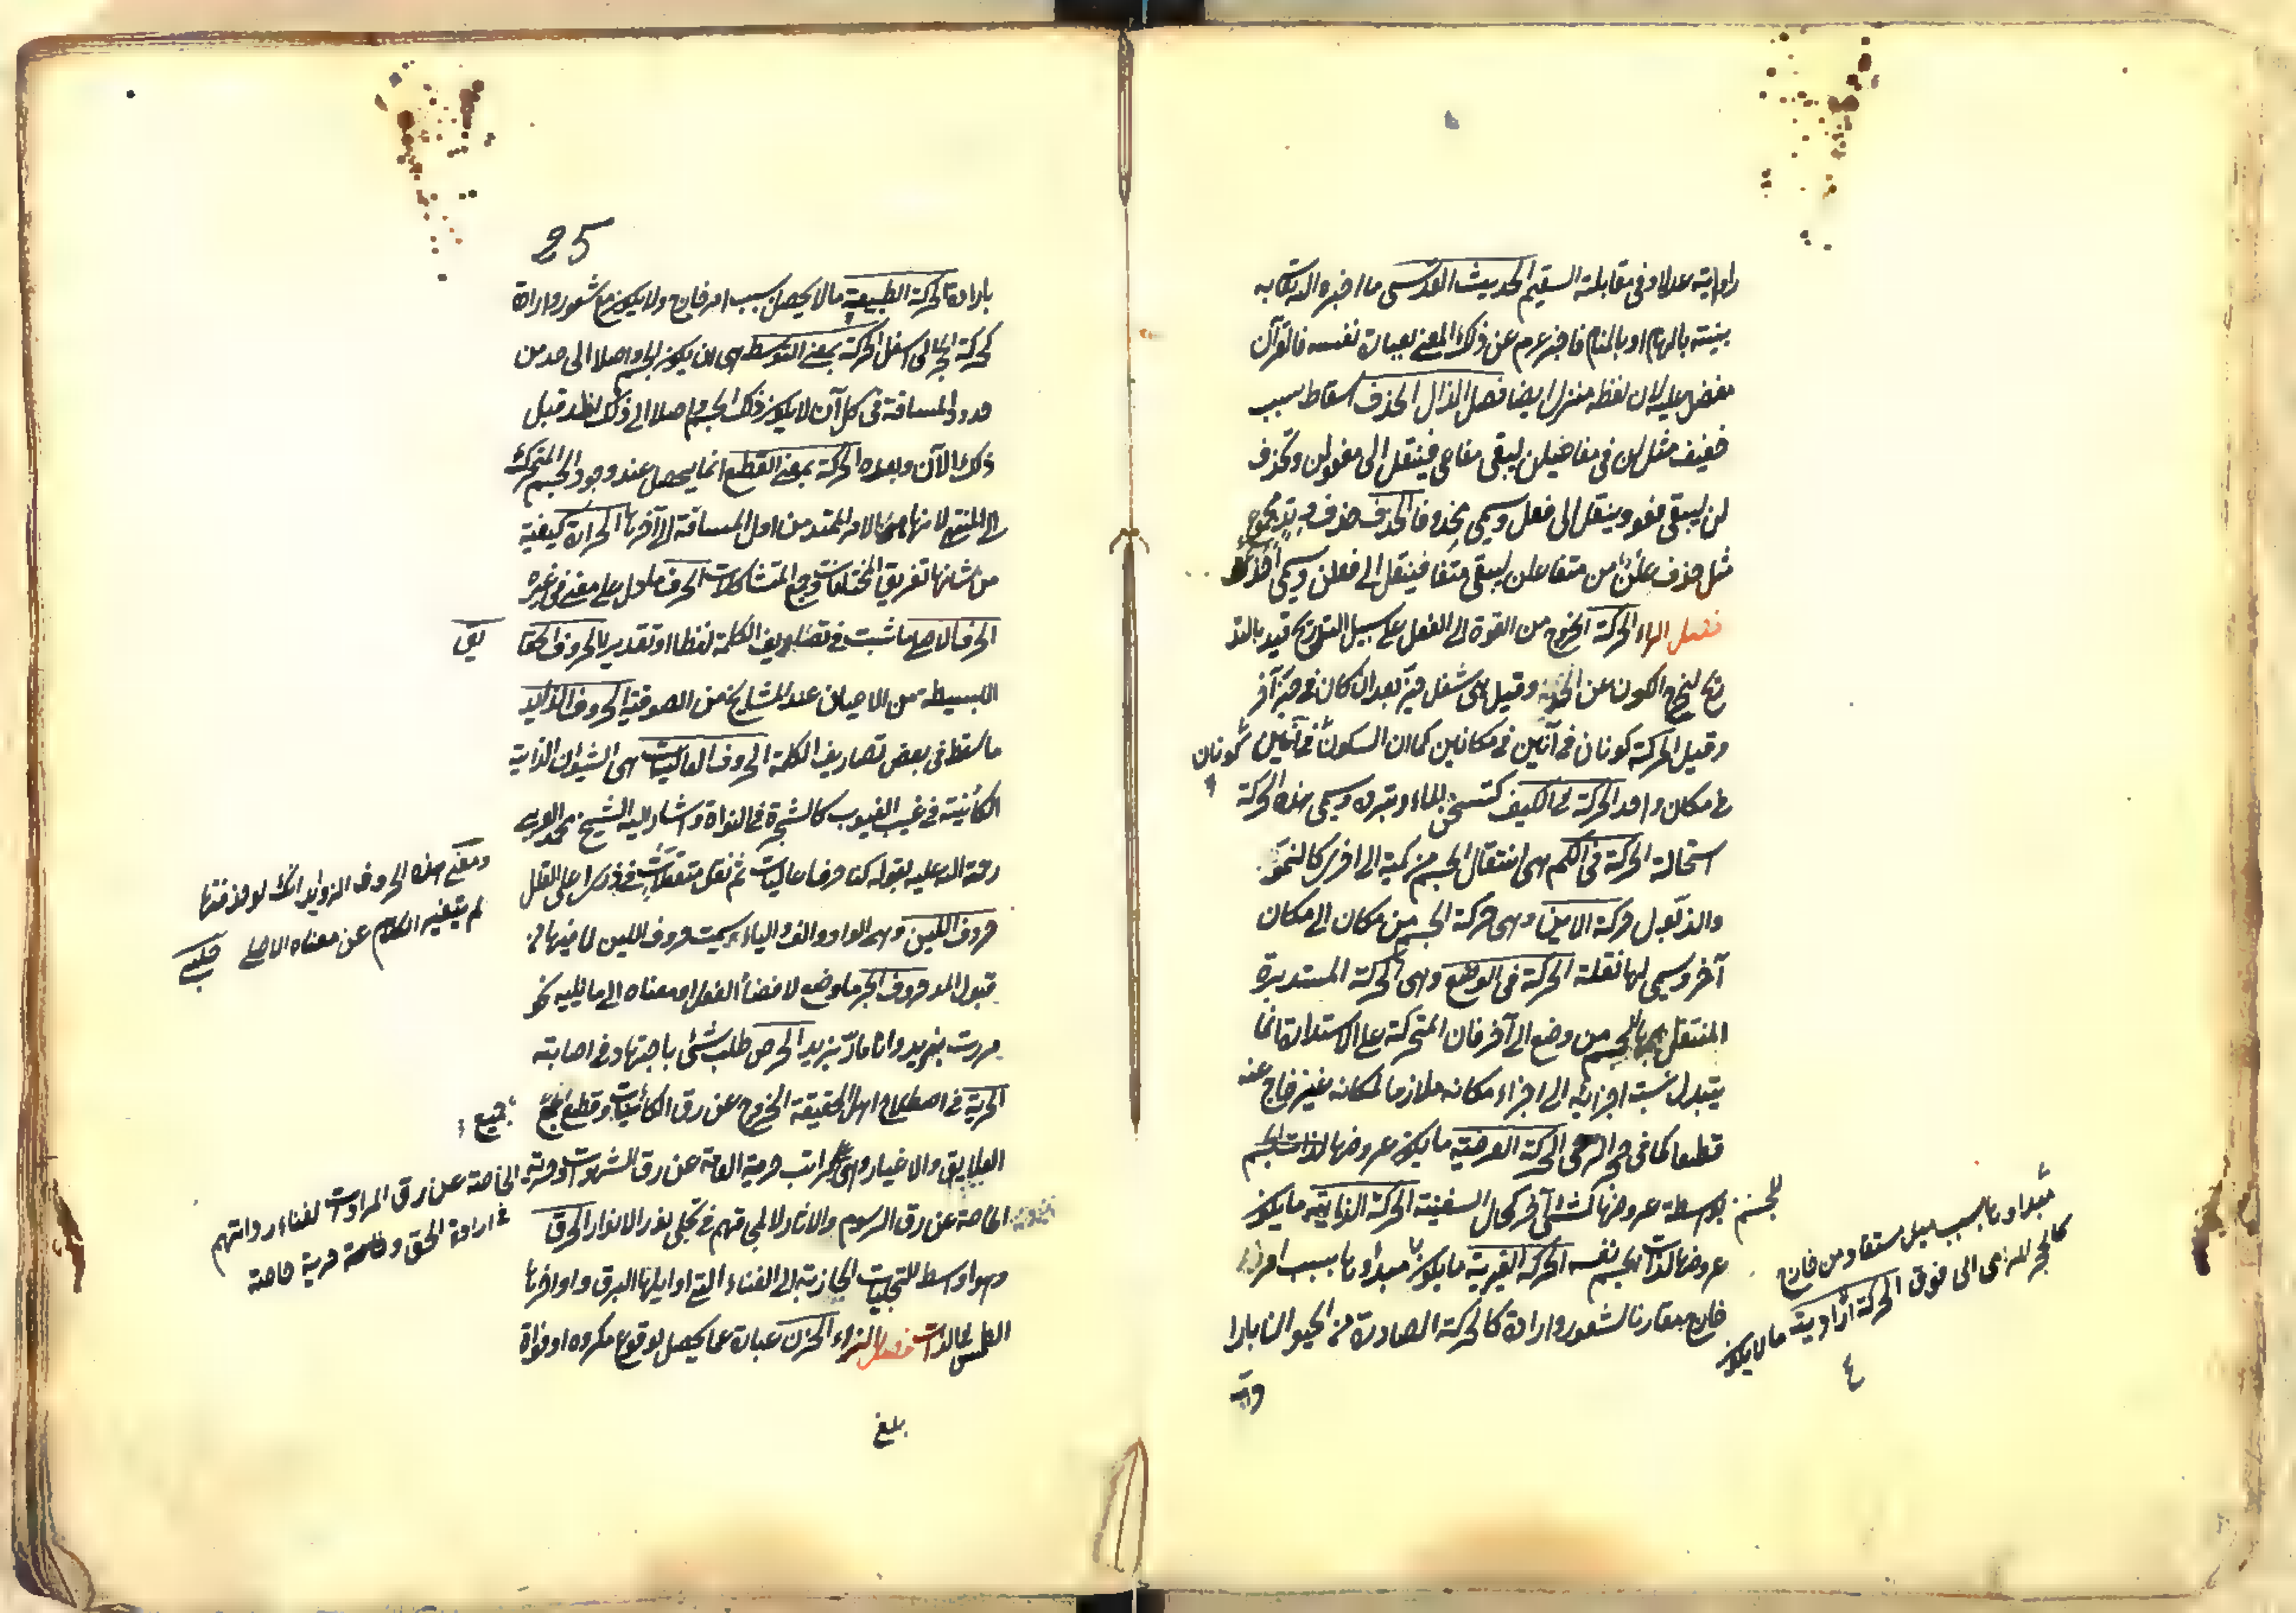 راوايته عدلا وفى مقابلته السقيم الحديث القدسى ما اخبره الله تعالى به
بنيته بالهام او بالمنام فاخبر عم عن ذلك المعنى بعبارة نفسه فالقرآن
مفضل عليه لان لفظه منزل ايضا فصل الذال الحذف اسقاط سبب
خفيف مثل لن فى مفاعيلن ليبقى مفاعى فينقل الى فعولن ويحذف
لن ليبقى فعو وينقل الى فعل ويسمى محذوفا الحذذ حذف وتد مجموع
مثل حذف علن من متفاعلن ليبقى متفا فينقل الى فعلن ويسمى احذ
فصل الراء الحركة الخروج من القوة الى الفعل على سبيل التدريج قيد بالتد
ريج ليخرج الكون عن الحركة وقيل هى شغل حيز بعد ان كان فى حيز آخر
وقيل الحركة كونان فى آنين فى مكانين كما ان السكون كونان فى آنين
فى مكان واحد الحركة فى الكيف كتسخن الماء وتبرده ويسمى هذه الحركة
استحالة الحركة فى الكم هى انتقال الجسم من كمية الى اخرى كالنمو
والذبول حركة الاين وهى حركة الجسم من مكان الى مكان
آخر ويسمى لها نقلة الحركة فى الوضع وهى الحركة المستديرة
المنتقل بها الجسم من وضع الى آخر فان المتحركة على الاستدارة انما
يتبدل نسبة اجزائه الى اجزاء مكانه ملازما لمكانه غير خارج عنه
قطعا كما فى حجر الرحى الحركة العرضية ما يكون عروضها للجسم
بواسطة عروضها لشئ آخر كحال السفينة الحركة الذاتية ما يكون
عروضها لذات الجسم نفسه الحركة القسرية ما يكون مبداوها بسبب امر
مبداوها بسبب ميل مستفاد من خارج
كالحجر المرمى الى فوق الحركة ارادية ما لا يكون
خارج مقارنا لشعور وارادة كالحركة الصادرة من الحيوان بارا
دته
25
بارادة الحركة الطبيعية ما لا يحصل بسبب امر خارج ولا يكون مع شعور وارادة
كحركة الحجر الى اسفل الحركة بمعنى التوسط هى ان يكون الجسم واصلا الى حد من
حدود المسافة فى كل آن لا يكون ذلك الجسم واصلا الى ذلك الحد قبل
ذلك الآن وبعده الحركة بمعنى القطع انما يحصل عند وجود الجسم المتحرك
الى المنتهى لانها هى الامر الممتد من اول المسافة الى آخرها الحرارة كيفية
من شانها تفريق المختلفات وجمع المتشاكلات الحرف ما دل على معنى فى غيره
الحرف الاصلى ما ثبت فى تصاريف الكلمة لفظا او تقديرا الحروف الحقايق
البسيطة من الاعيان عند المشايخ من الصوفية الحروف الزوايد
ما سقط فى بعض تصاريف الكلمة الحروف العاليات هى الشيون الذاتية
الكائنة فى غيب الغيوب كالشجرة فى النواة واشار اليه الشيخ محمد العربى
رحمة الله عليه بقوله كنا حروفا عاليات لم نقل متعلقات فى ذرى اعلى القلل
ومعنى هذه الحروف الزوايد انك لو حذفتها
لم يتغير الكلام عن معناه الاصلى چلبى
حروف اللين وهى الواو والالف والياء وسميت حروف اللين لما فيها من
قبول المد حروف الجر ما وضع لافضاء الفعل او معناه الى ما يليه نحو
مررت بزيد وانا مار بزيد الحرص طلب شئ باجتهاد فى اصابته
الحرية فى اصطلاح اهل الحقيقة الخروج عن رق الكائنات وقطع جميع
العلايق والاغيار وهى على مراتب حرية العامة عن رق الشهوات وحرية الخاصة عن رق المرادات لفناء ارادتهم
فى ارادة الحق وحرية خاصة
الخاصة عن رق الرسوم والاثار لانمحاقهم فى تجلى نور الانوار الحرق
وهو اوسط التجليات الجاذبة الى الفناء التى اوايلها البرق واواخرها
الطمس فى الذات فصل الزاء الحزن عبارة عما يحصل لوقوع مكروه او فوات
بلغ